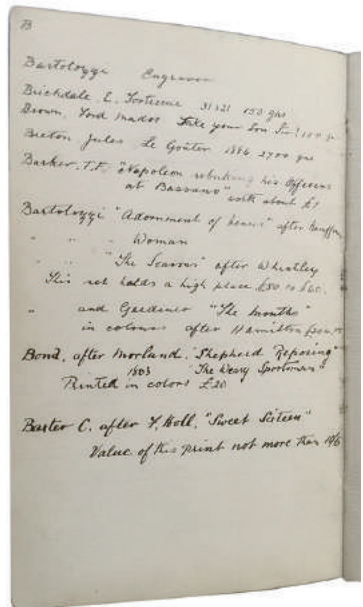 B
Bartolozzi Engraver
Brickdale E. Fortescue 31 x 21 150 gns
Brown, Ford Madox Take your Son Sir! 100 gns
Breton Jules Le Goûter 1886 2700 gns
Barker. T.J. "Napoleon rebuking his Officers
at Bassano" worth about £1
Bartolozzi "Adornment of" after Kauffman
" " " Woman
" " "The Seasons" after Wheatley
This set holds a high place £50 to £60.
" and Gardener "The Months"
in colours after Hamilton
Bond, after Morland, "Shepherd Reposing"
1803 "The Weary Sportsman"
Printed in colors £20
Baxter C. after F. Holl, "Sweet Sixteen"
Value of this print not more than 10/6